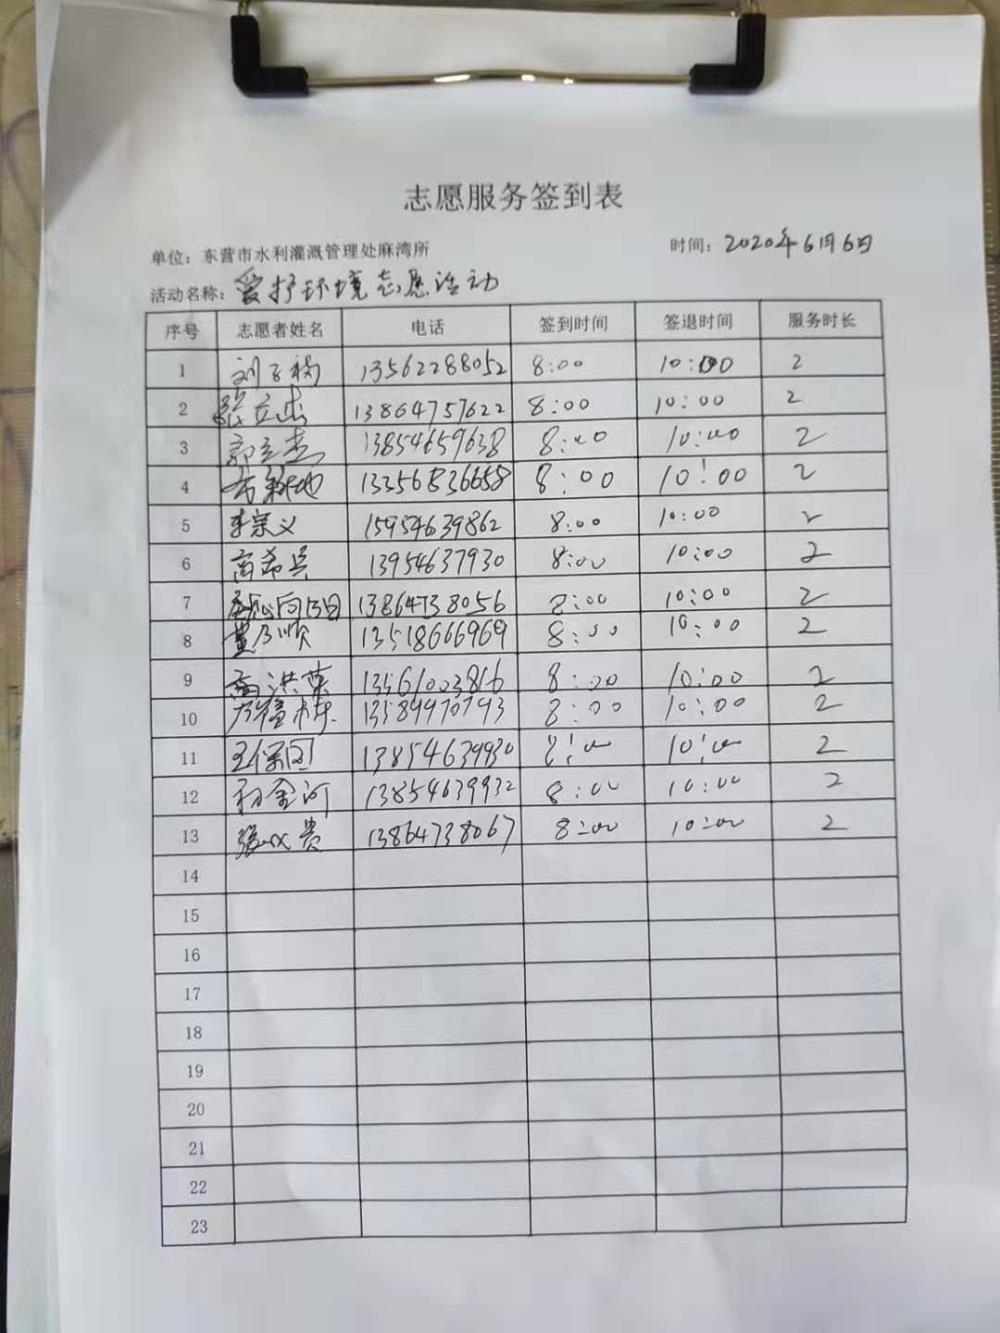 志愿服务签到表
单位：东营市水利灌溉管理处麻湾所 时间：2020年6月6日
活动名称：爱护环境志愿活动
序号 志愿者姓名 电话 签到时间 签退时间 服务时长
1 13562288052 8:00 10:00 2
2 张立杰 13864757622 8:00 10:00 2
3 郭立杰 13854659638 8:00 10:00 2
4 13356836658 8:00 10:00 2
5 李宗义 15954639862 8:00 10:00 2
6 高希兵 13954637930 8:00 10:00 2
7 13864738056 8:00 10:00 2
8 董乃顺 13518666969 8:00 10:00 2
9 13561003816 8:00 10:00 2
10 13589970793 8:00 10:00 2
11 王保国 13854639930 8:00 10:00 2
12 金河 13854639932 8:00 10:00 2
13 张 贵 13864738067 8:00 10:00 2
14
15
16
17
18
19
20
21
22
23